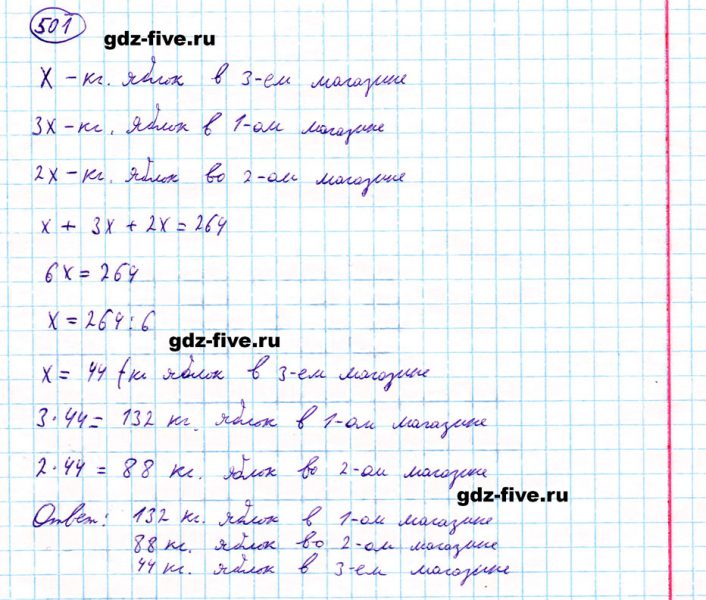 501
gdz-five.ru
x – кг. яблок в 3-ем магазине
3x – кг. яблок в 1-ом магазине
2x – кг. яблок во 2-ом магазине
x + 3x + 2x = 264
6x = 264
x = 264 : 6
gdz-five.ru
x = 44 (кг яблок в 3-ем магазине
3 · 44 = 132 кг. яблок в 1-ом магазине
2 · 44 = 88 кг. яблок во 2-ом магазине
gdz-five.ru
Ответ: 132 кг. яблок в 1-ом магазине
88 кг. яблок во 2-ом магазине
44 кг. яблок в 3-ем магазине